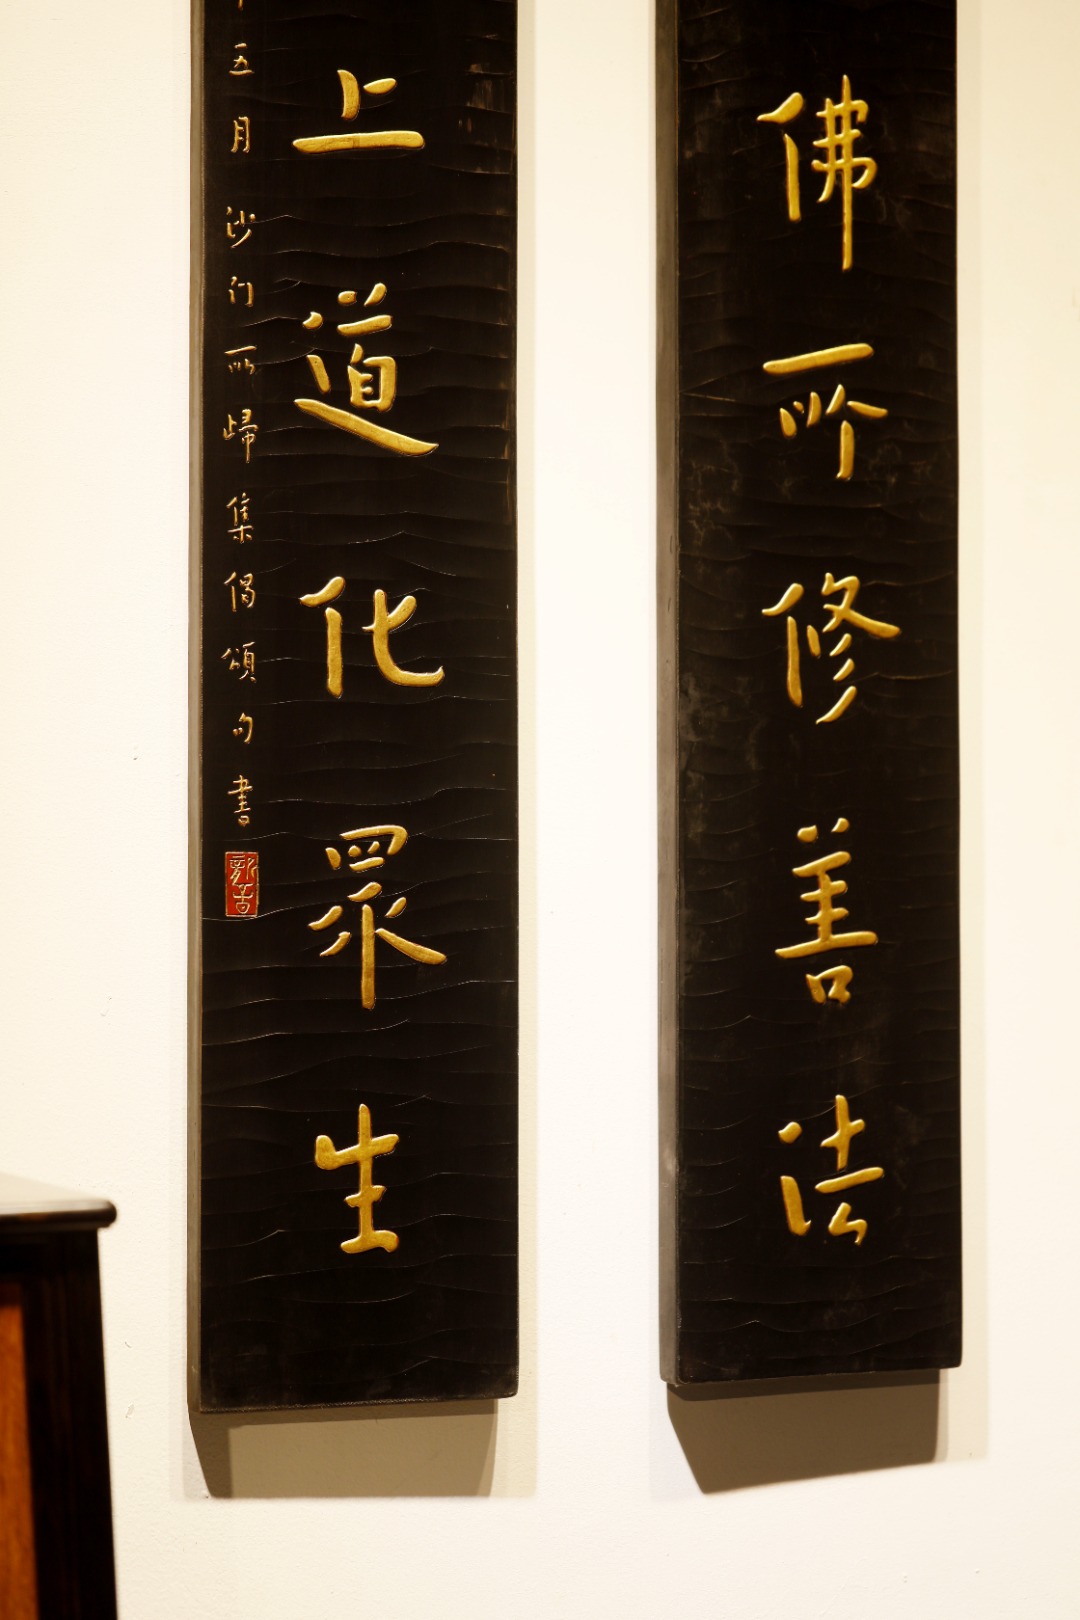 佛所修善法
上道化眾生
五月沙门所歸集偈頌句書